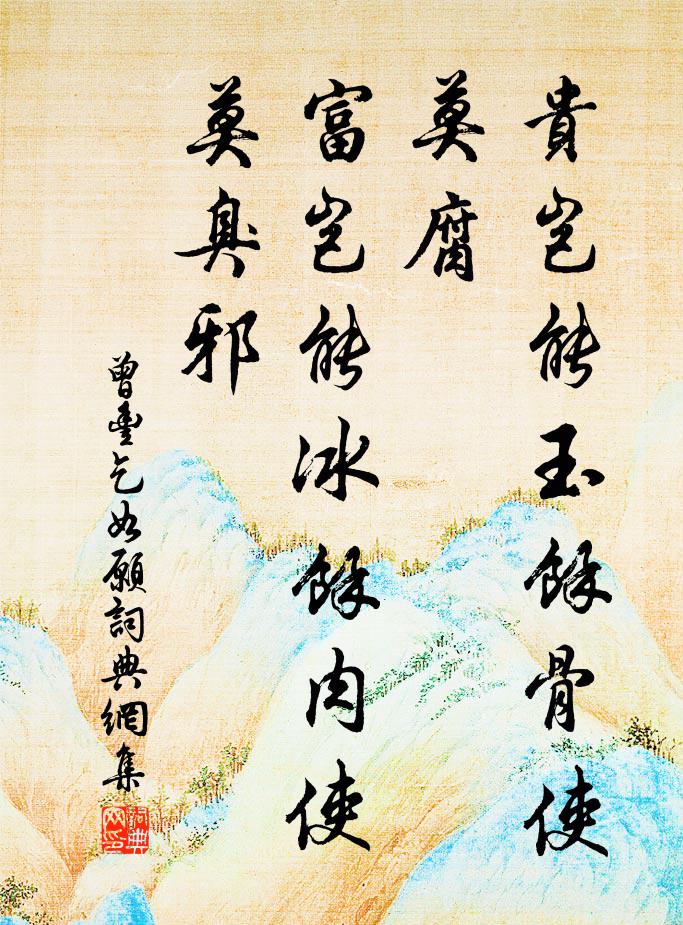 貴豈能玉餘骨使
莫腐
富豈能冰餘肉使
莫臭邪
曾豐乞如願詞典網集
詞典
网印